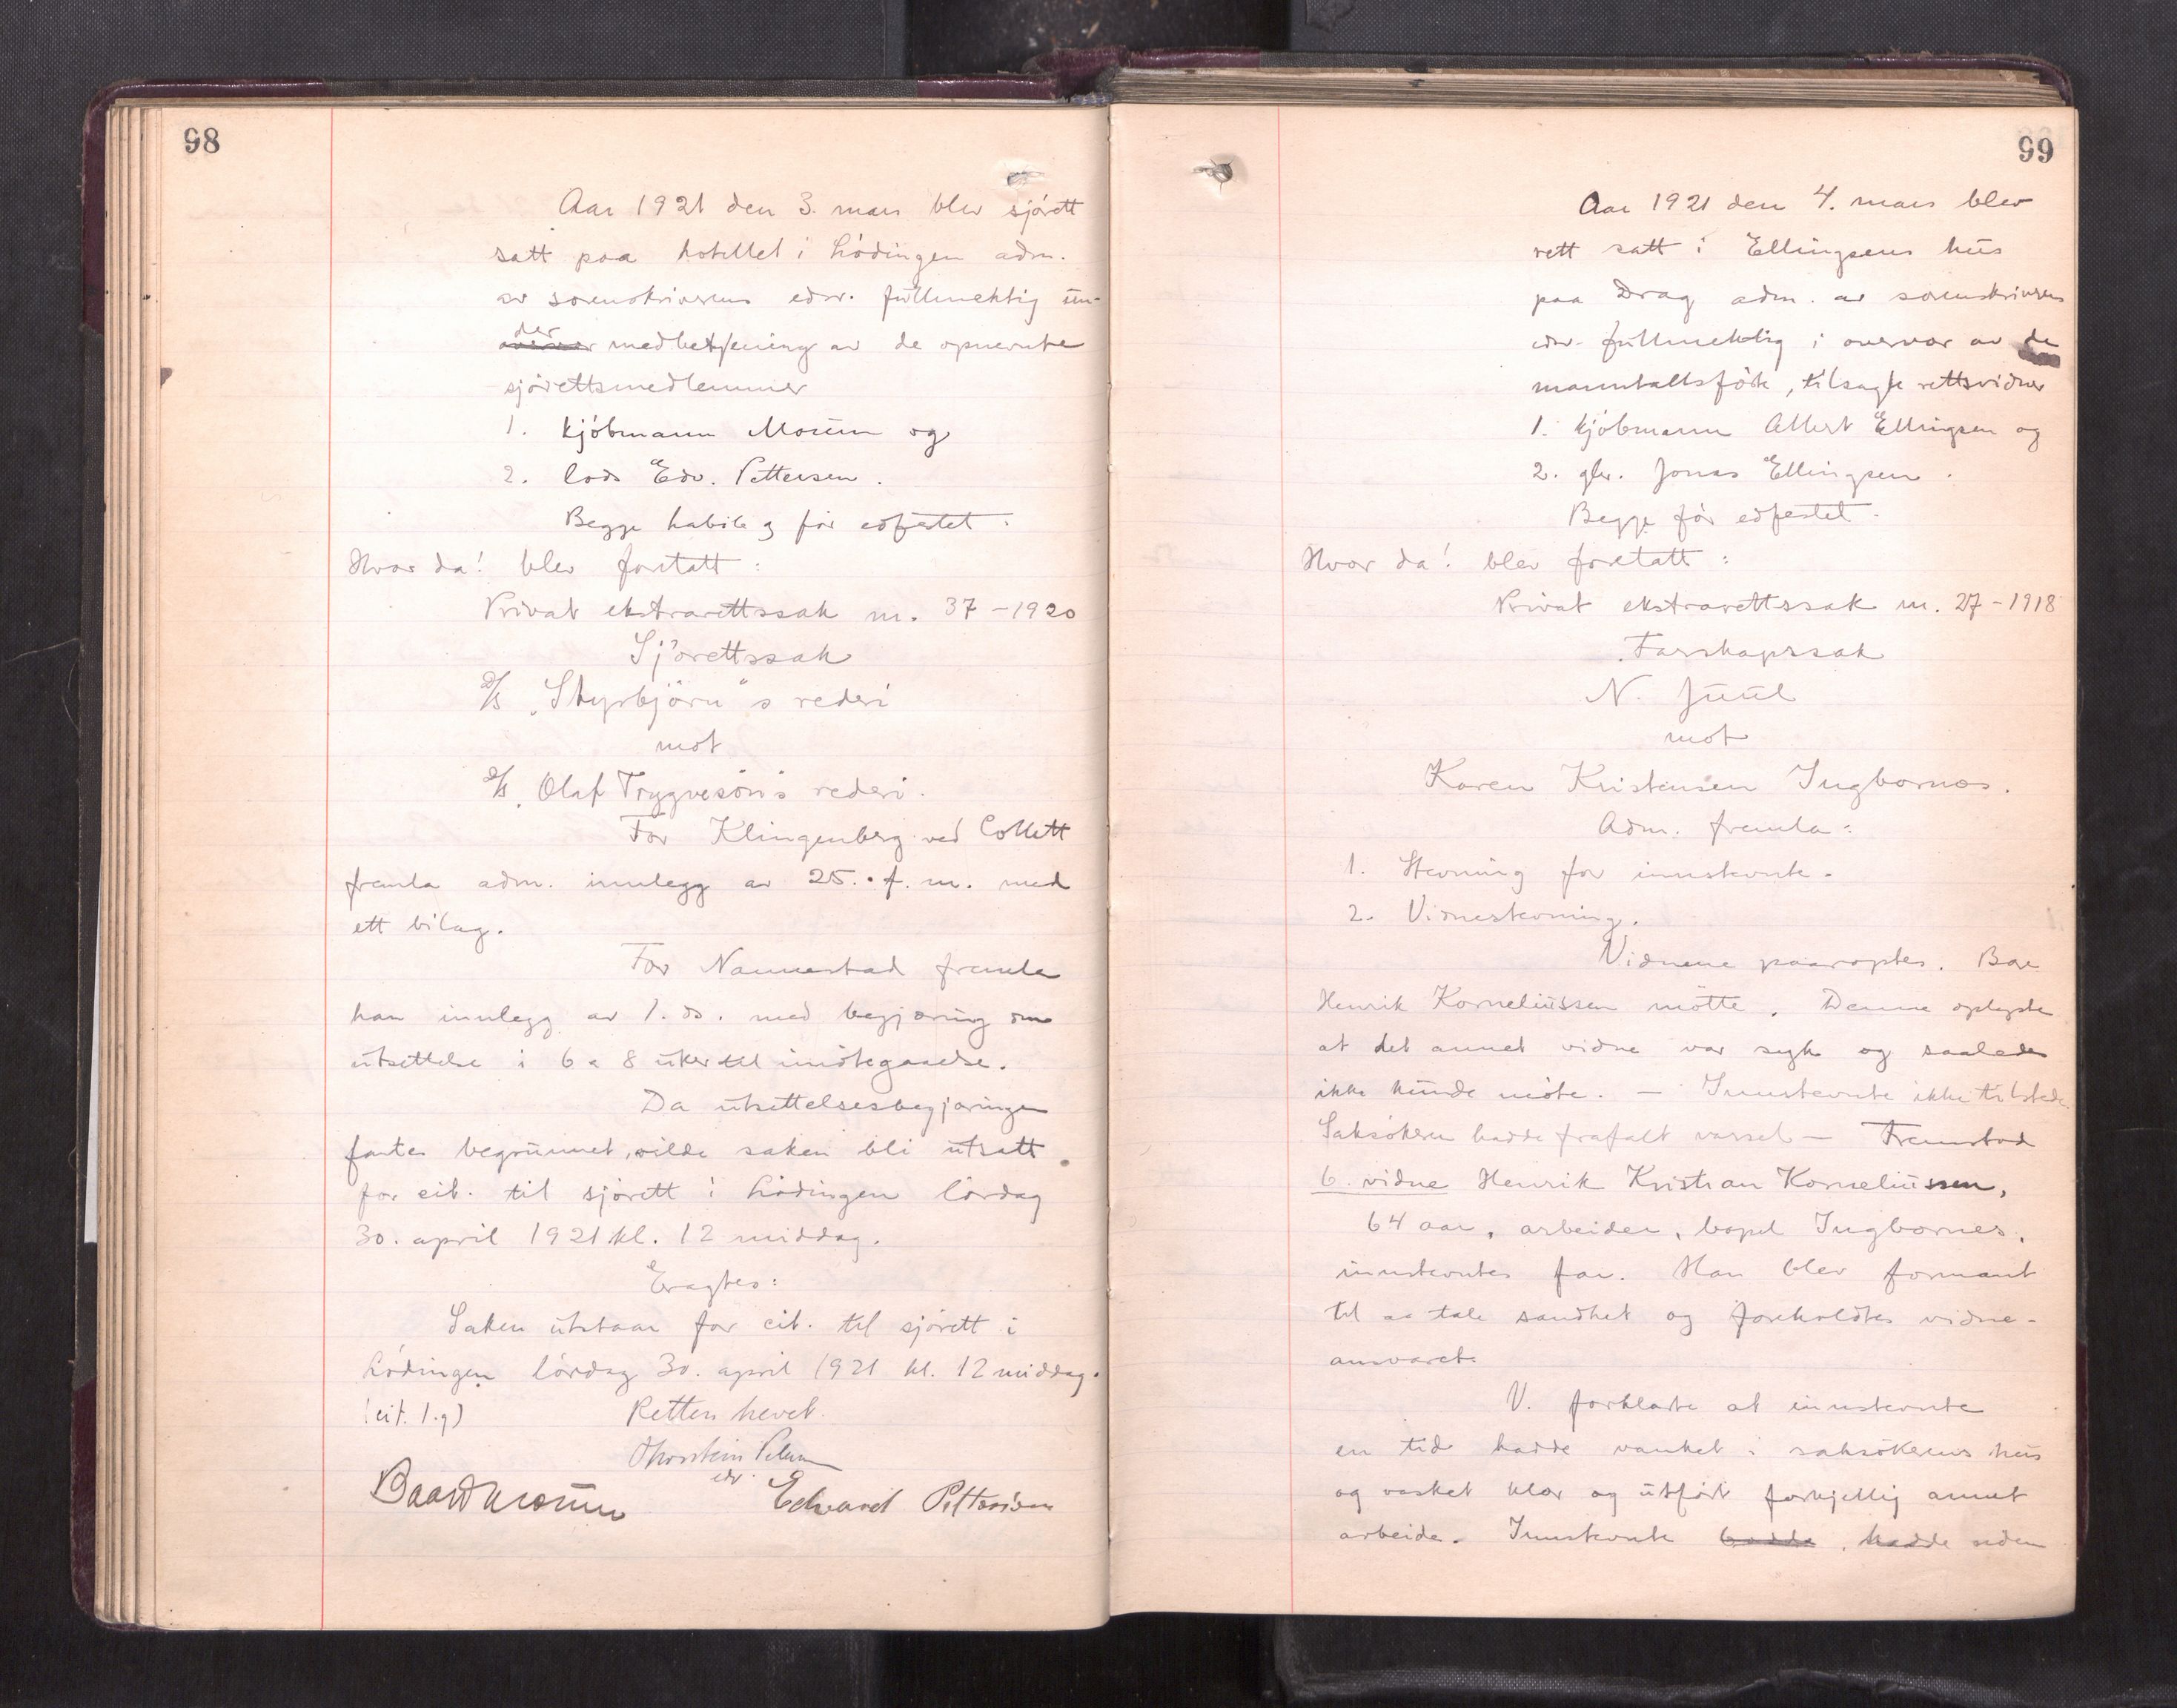 98
Aar 1921 den 3. mars blev sjörett
satt paa hotellet i Lödingen adm.
av sorenskriverens edsv. fullmektig un-
der medbetjening av de opnevnte
sjörettsmedlemmer
1. kjöbmann Moruen og
2. lods Edv. Pettersen.
Begge habile og för edfestet.
Hvor da! blev foretatt:
Privat ekstrarettssak nr. 37 - 1920
Sjörettssak
D/S „Styrbjörn"s rederi
mot
D/S „Olaf Trygvesön's rederi.
For Klingenberg ved Collett
fremla adm. innlegg av 25. f. m. med
ett bilag.
For Nannestad fremla
han innlegg av 1. ds. med begjæring om
utsettelse i 6 a 8 uker til imötegaaelse.
Da utsettelsesbegjæringen
fantes begrunnet, vilde saken bli utsatt
for eit. til sjörett i Lödingen lördag
30. april 1921 kl. 12 middag.
Eragtes:
Saken utstaar for eit. til sjörett i
Lödingen lördag 30. april 1921 kl. 12 middag.
(eit. 1.g) Retten hevet.
Thorstein
edsv.
Baard Edvard Pettersen
99
Aar 1921 den 4. mars blev
rett satt i Ellingsens hus
paa Drag adm. av sorenskriverens
edsv. fullmektig i overvær av de
manntallsförte, tilsagte rettsvidner
1. kjöbmann Albert Ellingsen og
2. gbr. Jonas Ellingsen.
Begge för edfestet.
Hvor da! blev foretatt:
Privat ekstrarettssak nr. 27 - 1918
Farskapssak
N. Juul
mot
Karen Kristensen Ingbornes.
Adm. fremla:
1. Stevning for innstevnte.
2. Vidnestevning.
Vidnene paaroptes. Bare
Henrik Korneliussen mötte. Denne oplyste
at det annet vidne var syk og saaledes
ikke kunde möte. — Innstevnte ikke tilstede.
Saksökeren hadde frafalt varsel — Fremstod
6. vidne Henrik Kristian Korneliussen,
64 aar, arbeider, bopel Ingbornes,
innstevntes far. Han blev formant
til aa tale sandhet og foreholdtes vidne-
ansvaret.
V. forklarte at innstevnte
en tid hadde vanket i saksökerens hus
og vasket klær og utfört forkjellig annet
arbeide. Innstevnte hadde siden